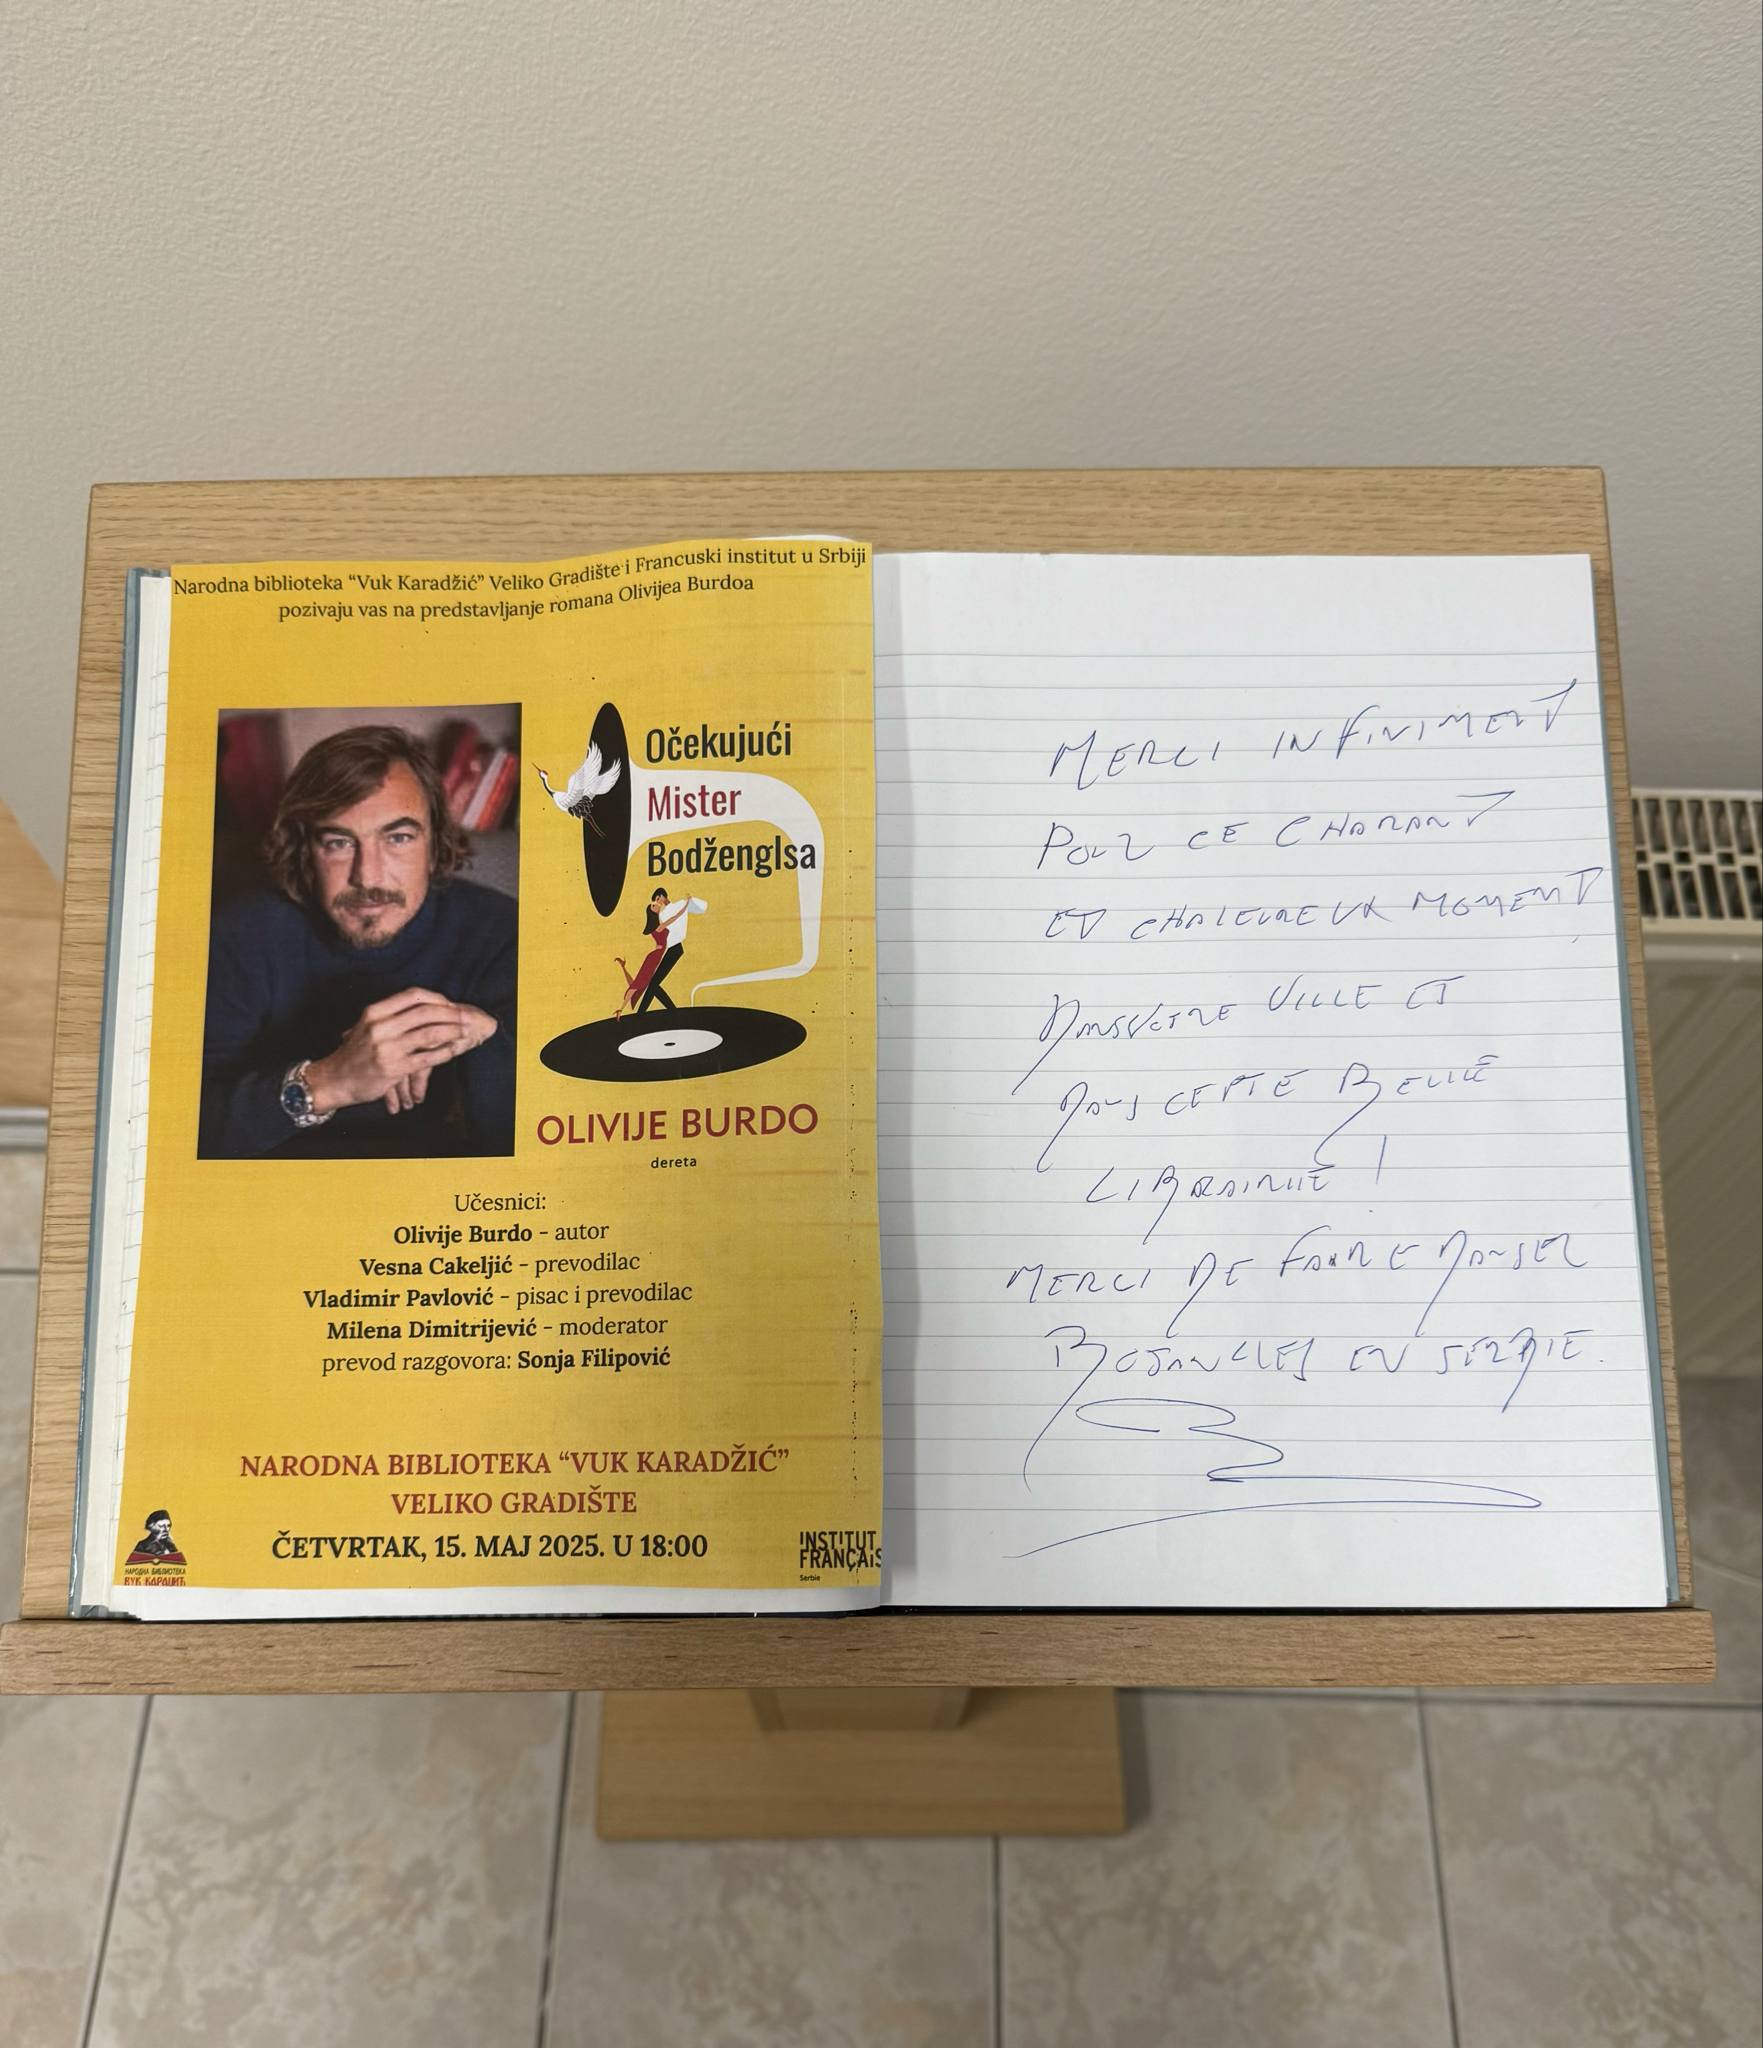 Narodna biblioteka “Vuk Karadžić” Veliko Gradište i Francuski institut u Srbiji
pozivaju vas na predstavljanje romana Olivijea Burdoa
Očekujući
Mister
Bodženglsa
OLIVIJE BURDO
dereta
Učesnici:
Olivije Burdo - autor
Vesna Cakeljić - prevodilac
Vladimir Pavlović - pisac i prevodilac
Milena Dimitrijević - moderator
prevod razgovora: Sonja Filipović
NARODNA BIBLIOTEKA “VUK KARADŽIĆ”
VELIKO GRADIŠTE
ČETVRTAK, 15. MAJ 2025. U 18:00
НАРОДНА БИБЛИОТЕКА
ВУК КАРАЏИЋ
INSTITUT
FRANÇAIS
Serbie
MERCI INFINIMENT
POUR CE CHARMANT
ET CHALEUREUX MOMENT
DANS VOTRE VILLE ET
DANS CETTE BELLE
LIBRAIRIE !
MERCI DE FAIRE DANSER
BOJANGLES EN SERBIE.